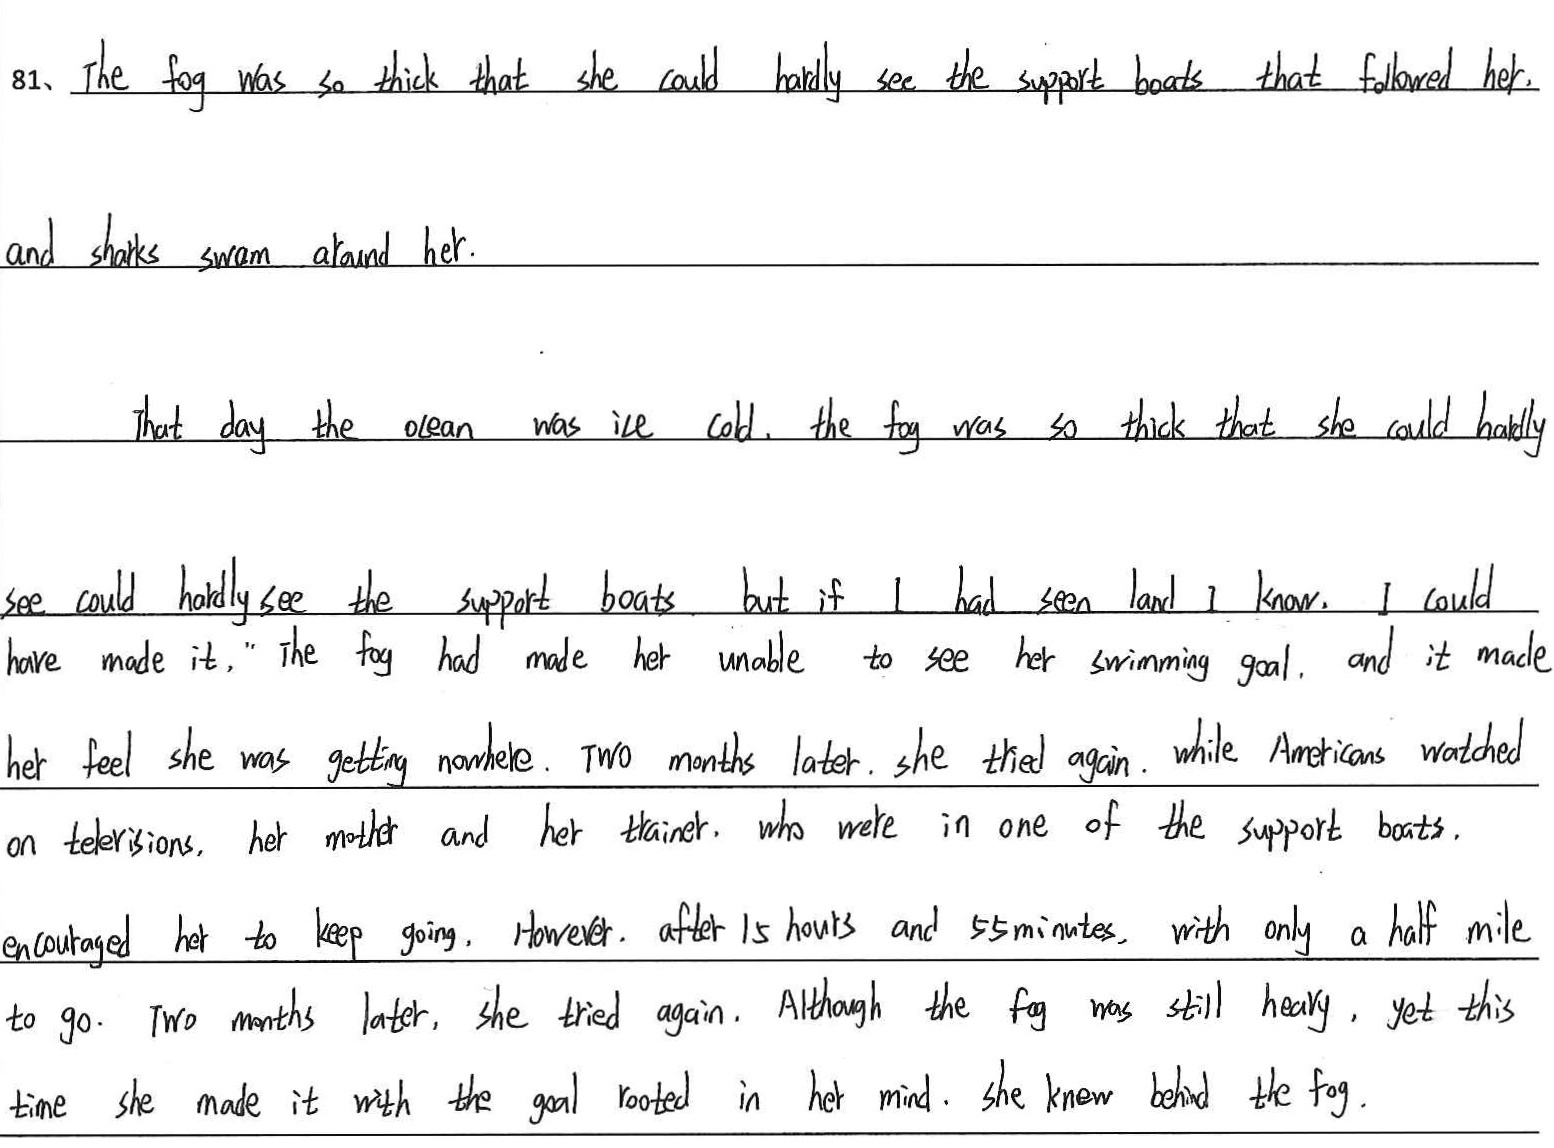 81、The fog was so thick that she could hardly see the support boats that followed her.
and sharks swam around her.
That day the ocean was ice cold. the fog was so thick that she could hardly
see could hardly see the support boats but if I had seen land I know. I could
have made it." The fog had made her unable to see her swimming goal. and it made
her feel she was getting nowhere. Two months later. she tried again. while Americans watched
on televisions, her mother and her trainer. who were in one of the support boats.
encouraged her to keep going. However. after 15 hours and 55 minutes. with only a half mile
to go. Two months later, she tried again. Although the fog was still heavy, yet this
time she made it with the goal rooted in her mind. she knew behind the fog.